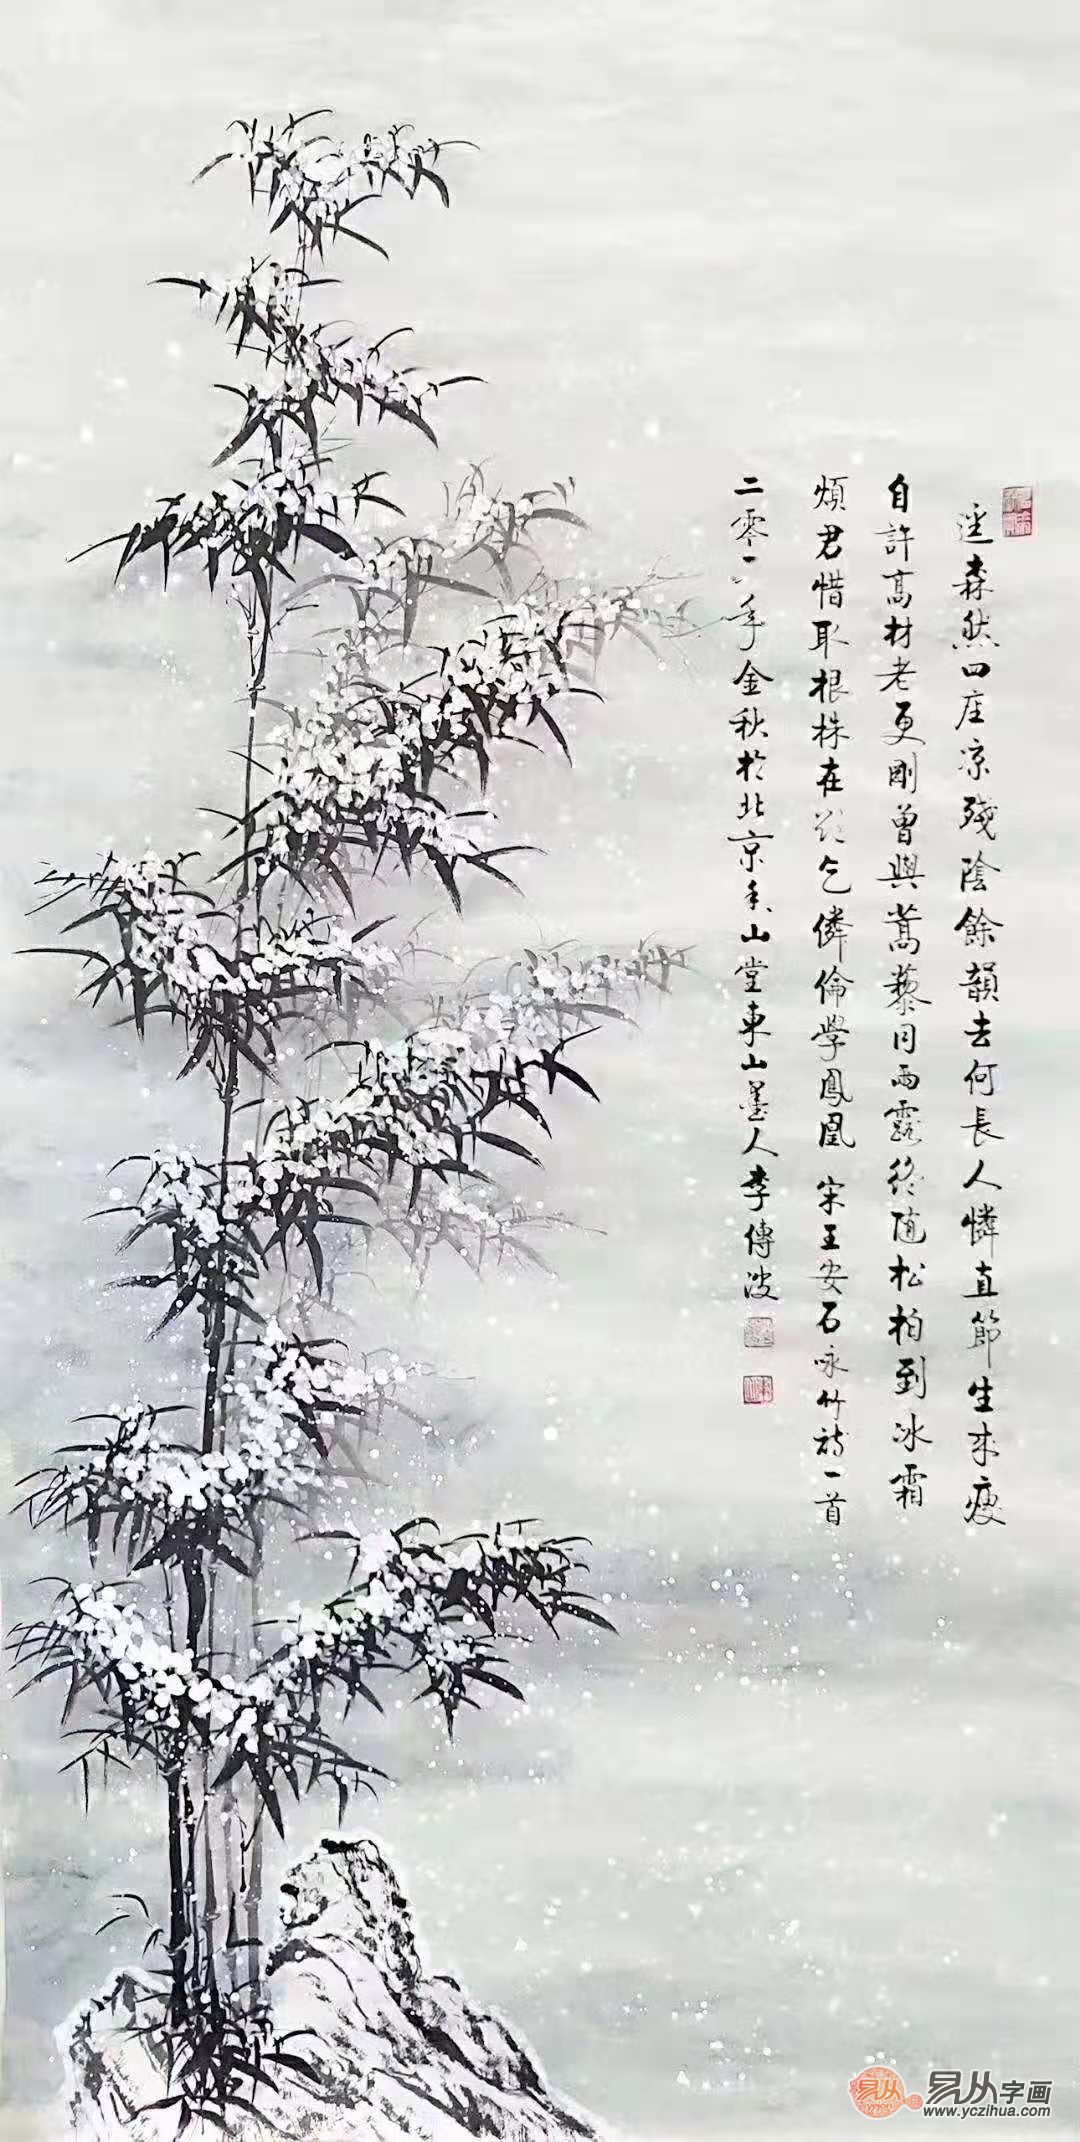 迳森然四座凉殘陰餘韻去何長人憐直節生来瘦
自許高材老更剛曾與蒿藜同雨露終随松柏到冰霜
煩君惜取根株在欲乞僯倫學鳳凰 宋王安石咏竹詩一首
二零一八年金秋於北京香山堂東山墨人李傳波
易从
易从字画
www.yczihua.com